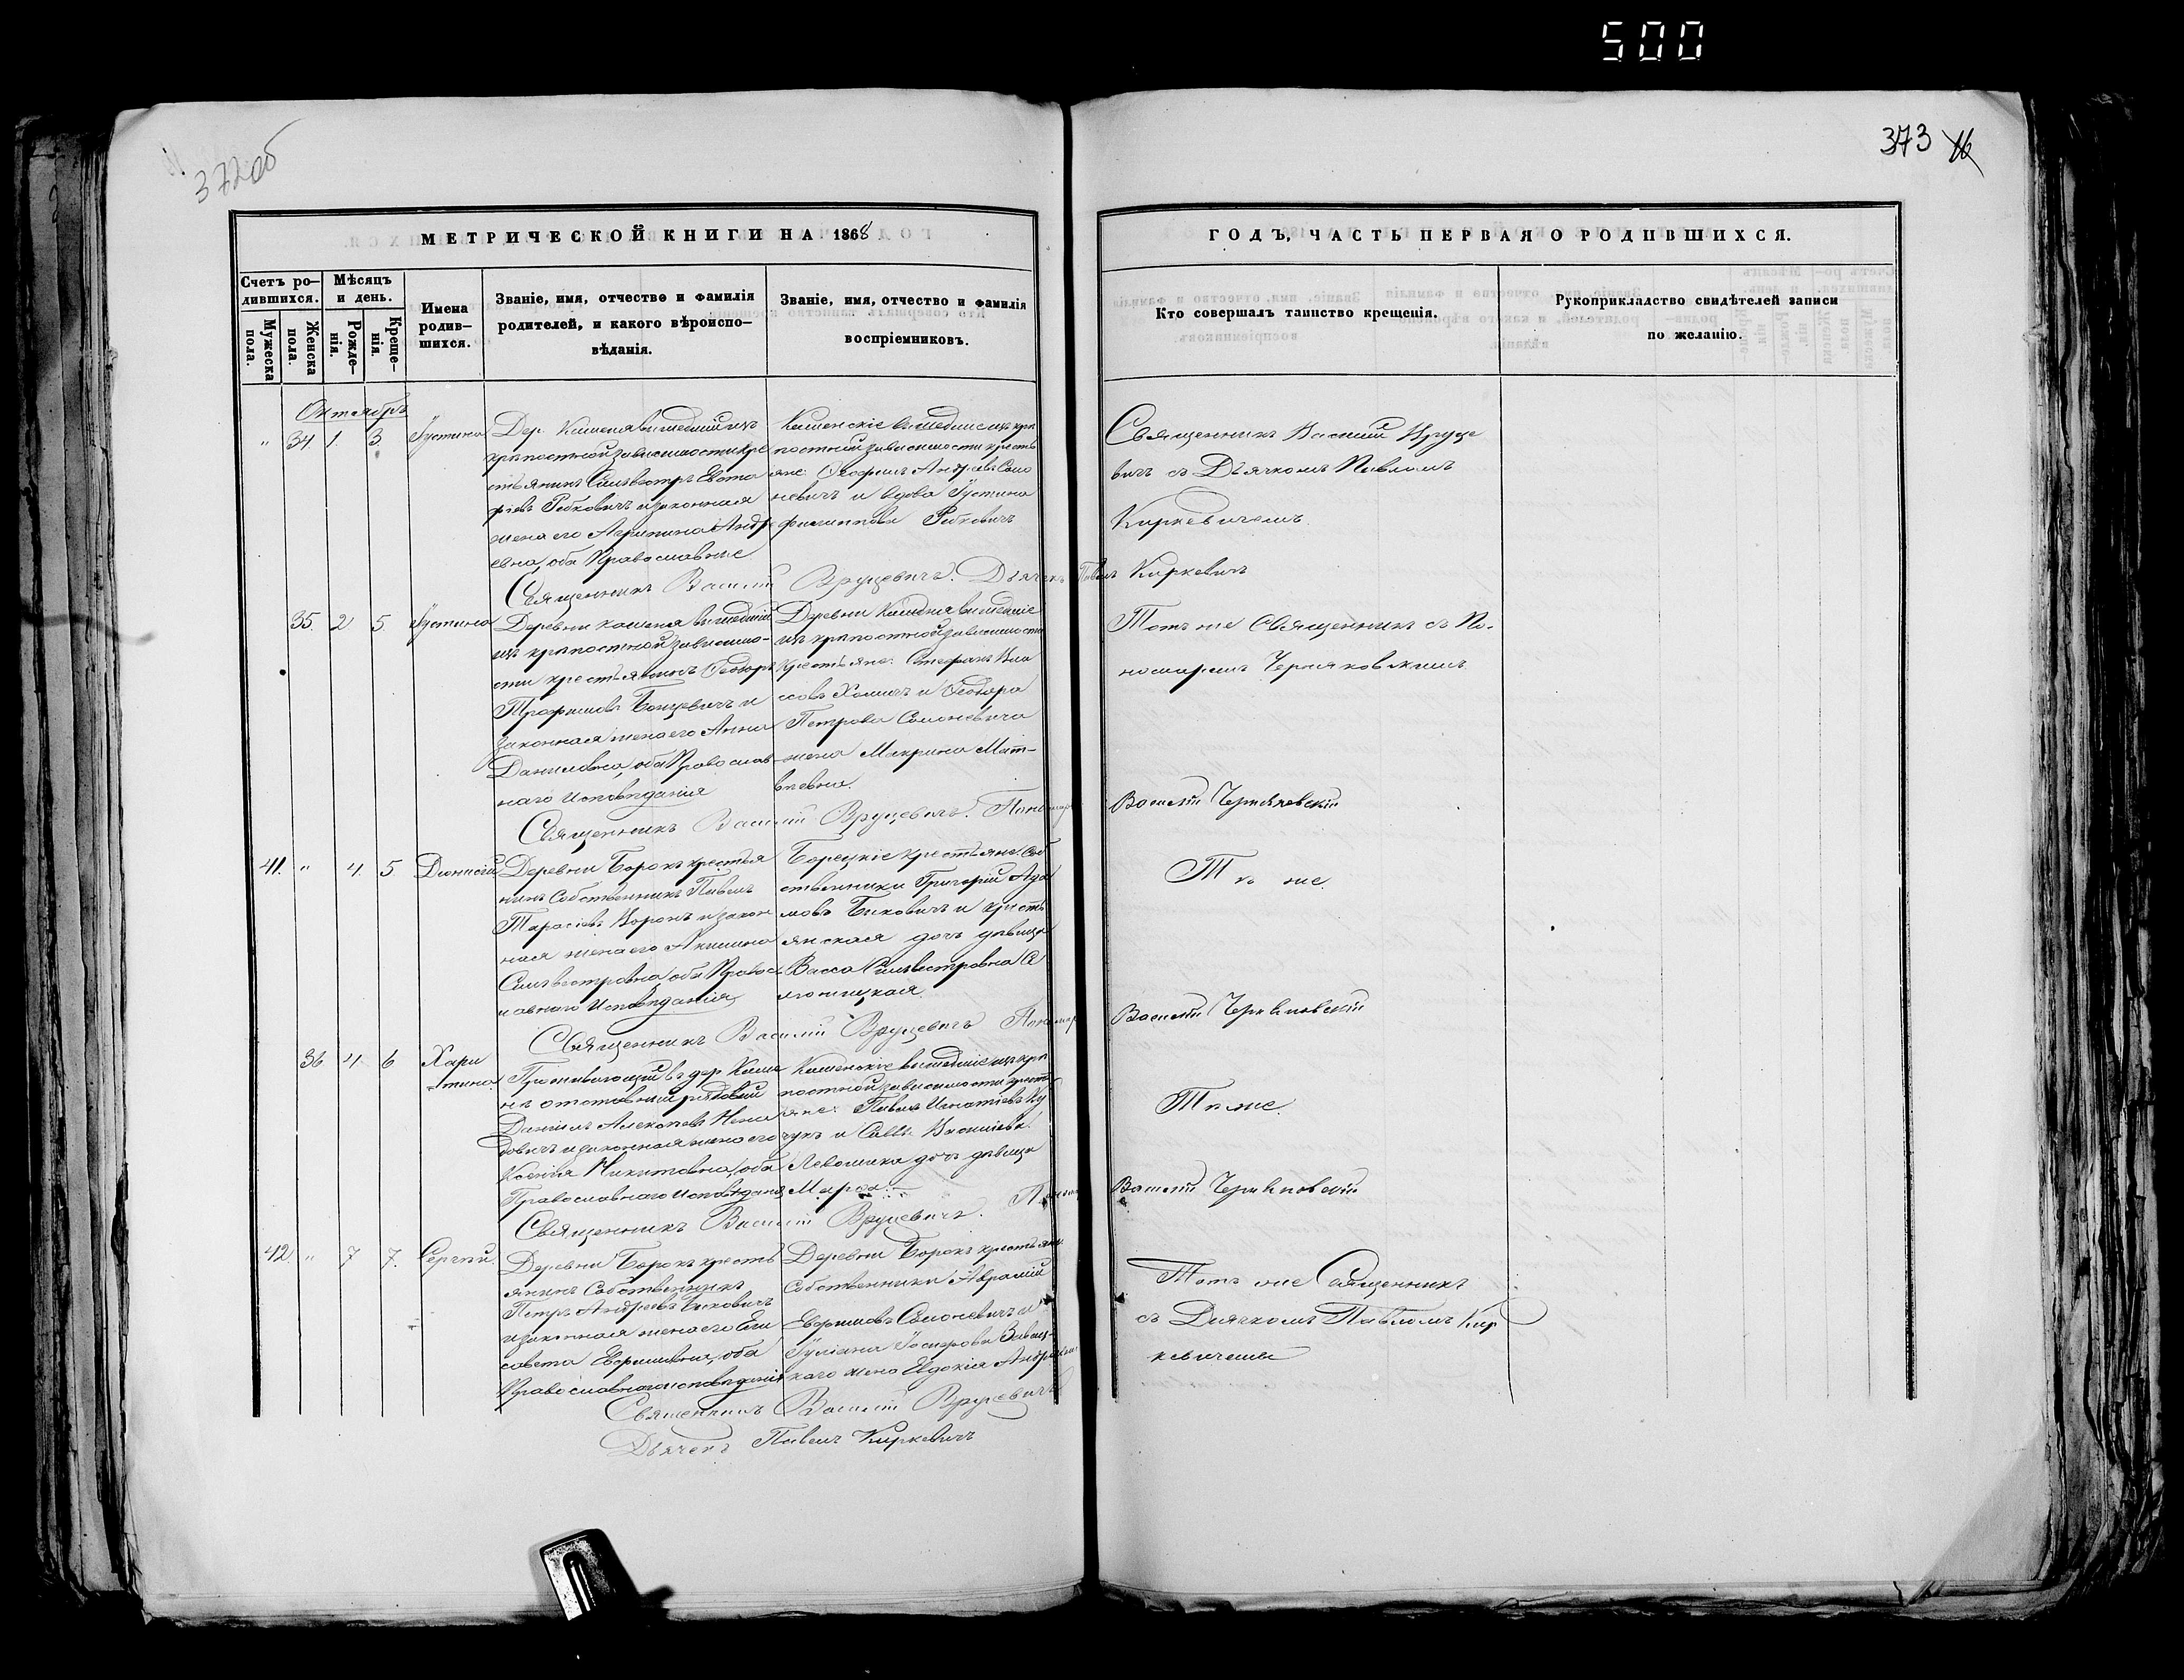 500
372об
373 16
МЕТРИЧЕСКОЙ КНИГИ НА 1868
ГОДЪ, ЧАСТЬ ПЕРВАЯ О РОДИВШИХСЯ.
Счетъ ро-
дившихся.
Мужеска
пола.
Женска
пола.
Мѣсяцъ
и день.
Рожде-
нія.
Креще-
нія.
Имена
родив-
шихся.
Званіе, имя, отчество и фамилія
родителей, и какого вѣроиспо-
вѣданія.
Званіе, имя, отчество и фамилія
воспріемниковъ.
Кто совершалъ таинство крещенія.
Рукоприкладство свидѣтелей записи
по желанію.
Октябрь
" 34. 1. 3. Іустина
Дер. Каменя вышедшій изъ
крѣпостной зависимости кре
стьянинъ Сильвестръ Евста
фіевъ Рабковичъ и законная
жена его Агрипина Андре
евна, оба Православные
Каменскіе вышедшіе изъ крѣ
постной зависимости кресть
яне: Ѳеофилъ Андреевъ Само
невичъ и вдова Іустина
Филиппова Рабковичъ
Священникъ Василій Вруце
вичъ съ Дьячкомъ Павломъ
Киркевичемъ.
Священникъ Василій Вруцевичъ. Дьячекъ Павелъ Киркевичъ
35. 2 5 Іустина
Деревни Каменя вышедшій
изъ крѣпостной зависимо-
сти крестьянинъ Ѳеодоръ
Трофимовъ Банцевичъ и
законная жена его Анна
Даниловна, оба Православ
наго Исповѣданія
Деревни Каменя вышедшіе
изъ крѣпостной зависимости
Крестьяне: Стефанъ Вла
совъ Хомичъ и Ѳеодора
Петрова Самоневича
жена Макрина Мат-
вѣевна.
Тотъ же Священникъ съ По-
номаремъ Черняковскимъ.
Священникъ Василій Вруцевичъ. Пономарь Василій Черняковскій
41. " 4. 5 Діонисій
Деревни Борокъ крестья
нинъ Собственникъ Павелъ
Тарасіевъ Воронъ и закон
ная жена его Акилина
Сильвестровна, оба Правос
лавнаго Исповѣданія
Борецкіе крестьяне Соб
ственники Григорій Ада
мовъ Быковичъ и кресть
янская дочь дѣвица
Васса Сильвестровна
Тѣ же.
Священникъ Василій Вруцевичъ Пономарь Василій Черняковскій
36 4. 6 Хари
тина
Проживающій въ дер. Каме
нѣ отставный рядовый
Даніилъ Алексѣевъ
и законная жена его
Ксенія Никитовна, оба
Православнаго исповѣданія
Каменскіе вышедшіе изъ крѣ
постной зависимости кресть
яне: Павелъ Игнатіевъ
и Саввы
дочь дѣвица
Марѳа
Тѣ же.
Священникъ Василій Вруцевичъ. Пономарь Василій Черняковскій
42. " 7 7. Сергій.
Деревни Борокъ кресть
янинъ Собственникъ
Петръ Андреевъ Быковичъ
и законная жена его Ели
савета Евфимовна, оба
Православнаго исповѣданія
Деревни Борокъ крестьяне
Собственники Аврамій
Евфимовъ Самоневичъ и
Іуліана
жена Евдокія Андреевна
Тотъ же Священникъ
съ Дьячкомъ Павломъ Кир
кевичемъ
Священникъ Василій Вруцевичъ
Дьячекъ Павелъ Киркевичъ